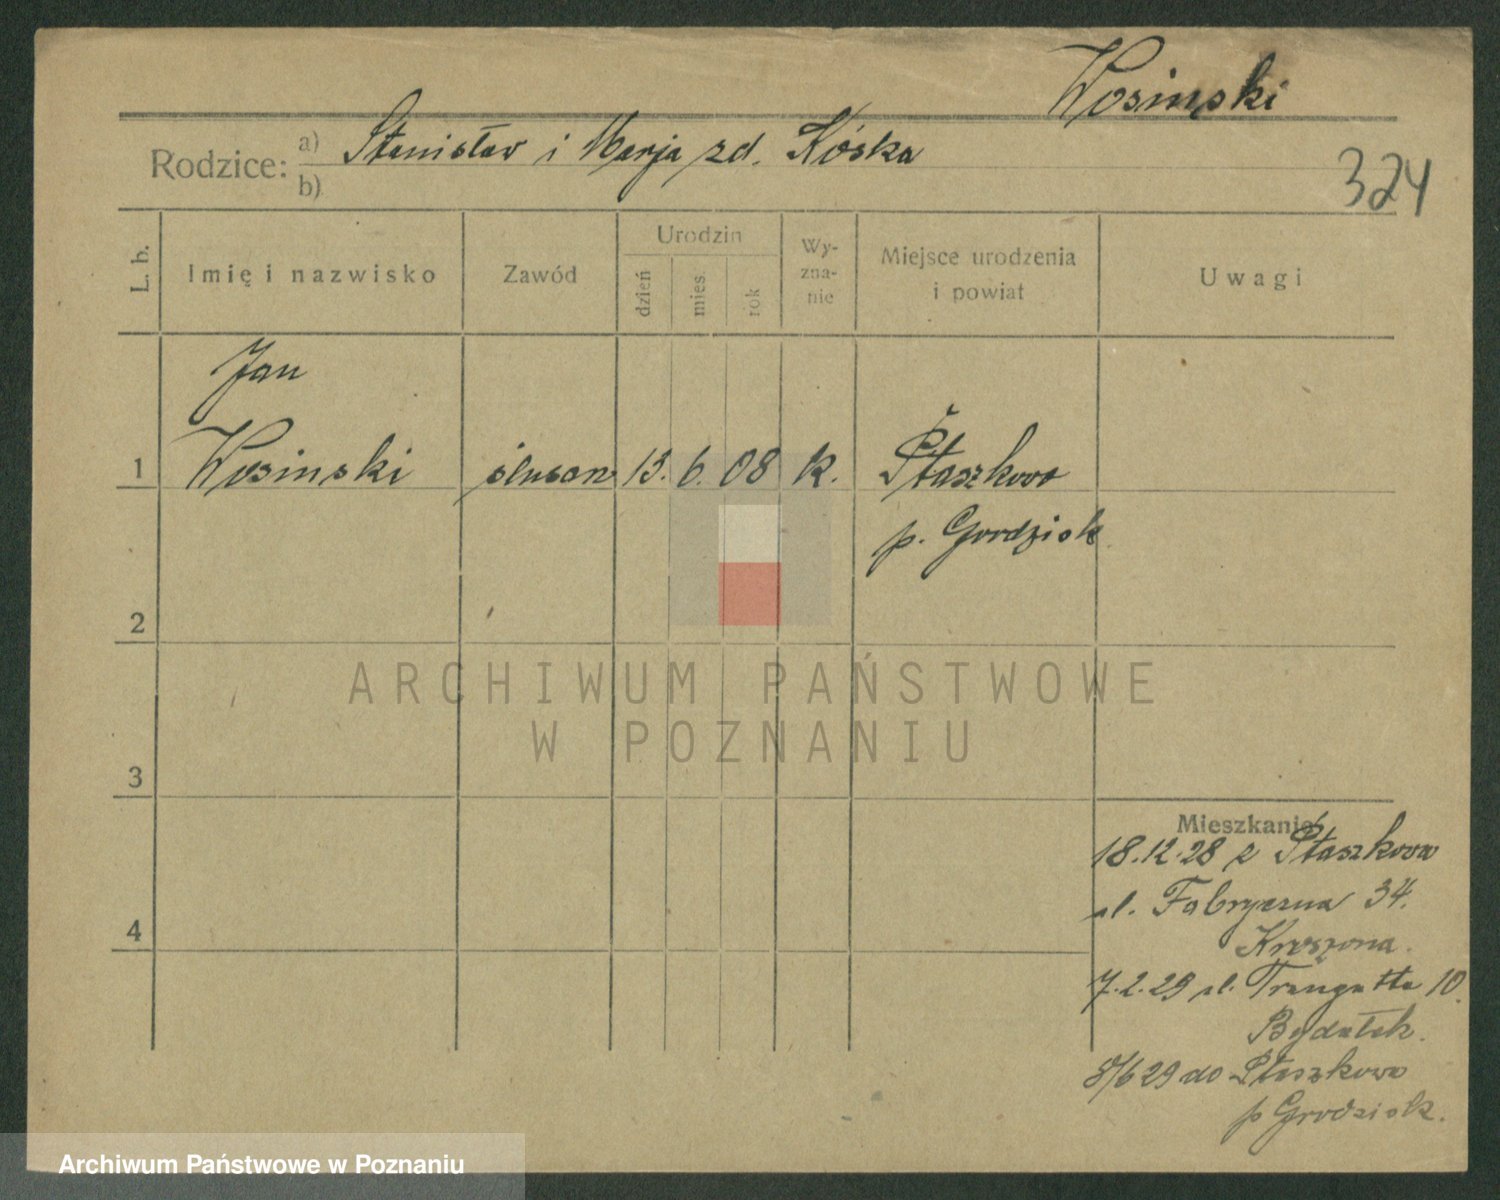 Wosinski
Rodzice: a) Stanisław i Marja zd. Kóska
b)
324
L. b.
Imię i nazwisko
Zawód
Urodzin
dzień
mies.
rok
Wy-
zna-
nie
Miejsce urodzenia
i powiat
Uwagi
Jan
1 Wosinski ślusarz 13. 6. 08 k. Ptaszkowo
p. Grodzisk
2
ARCHIWUM PAŃSTWOWE
W POZNANIU
3
Mieszkanie
18.12.28 z Ptaszkowa
ul. Fabryczna 34.
7.2.29 ul. Traugutta 10.
8/6 29 do Ptaszkowo
4
p Grodzisk.
Archiwum Państwowe w Poznaniu